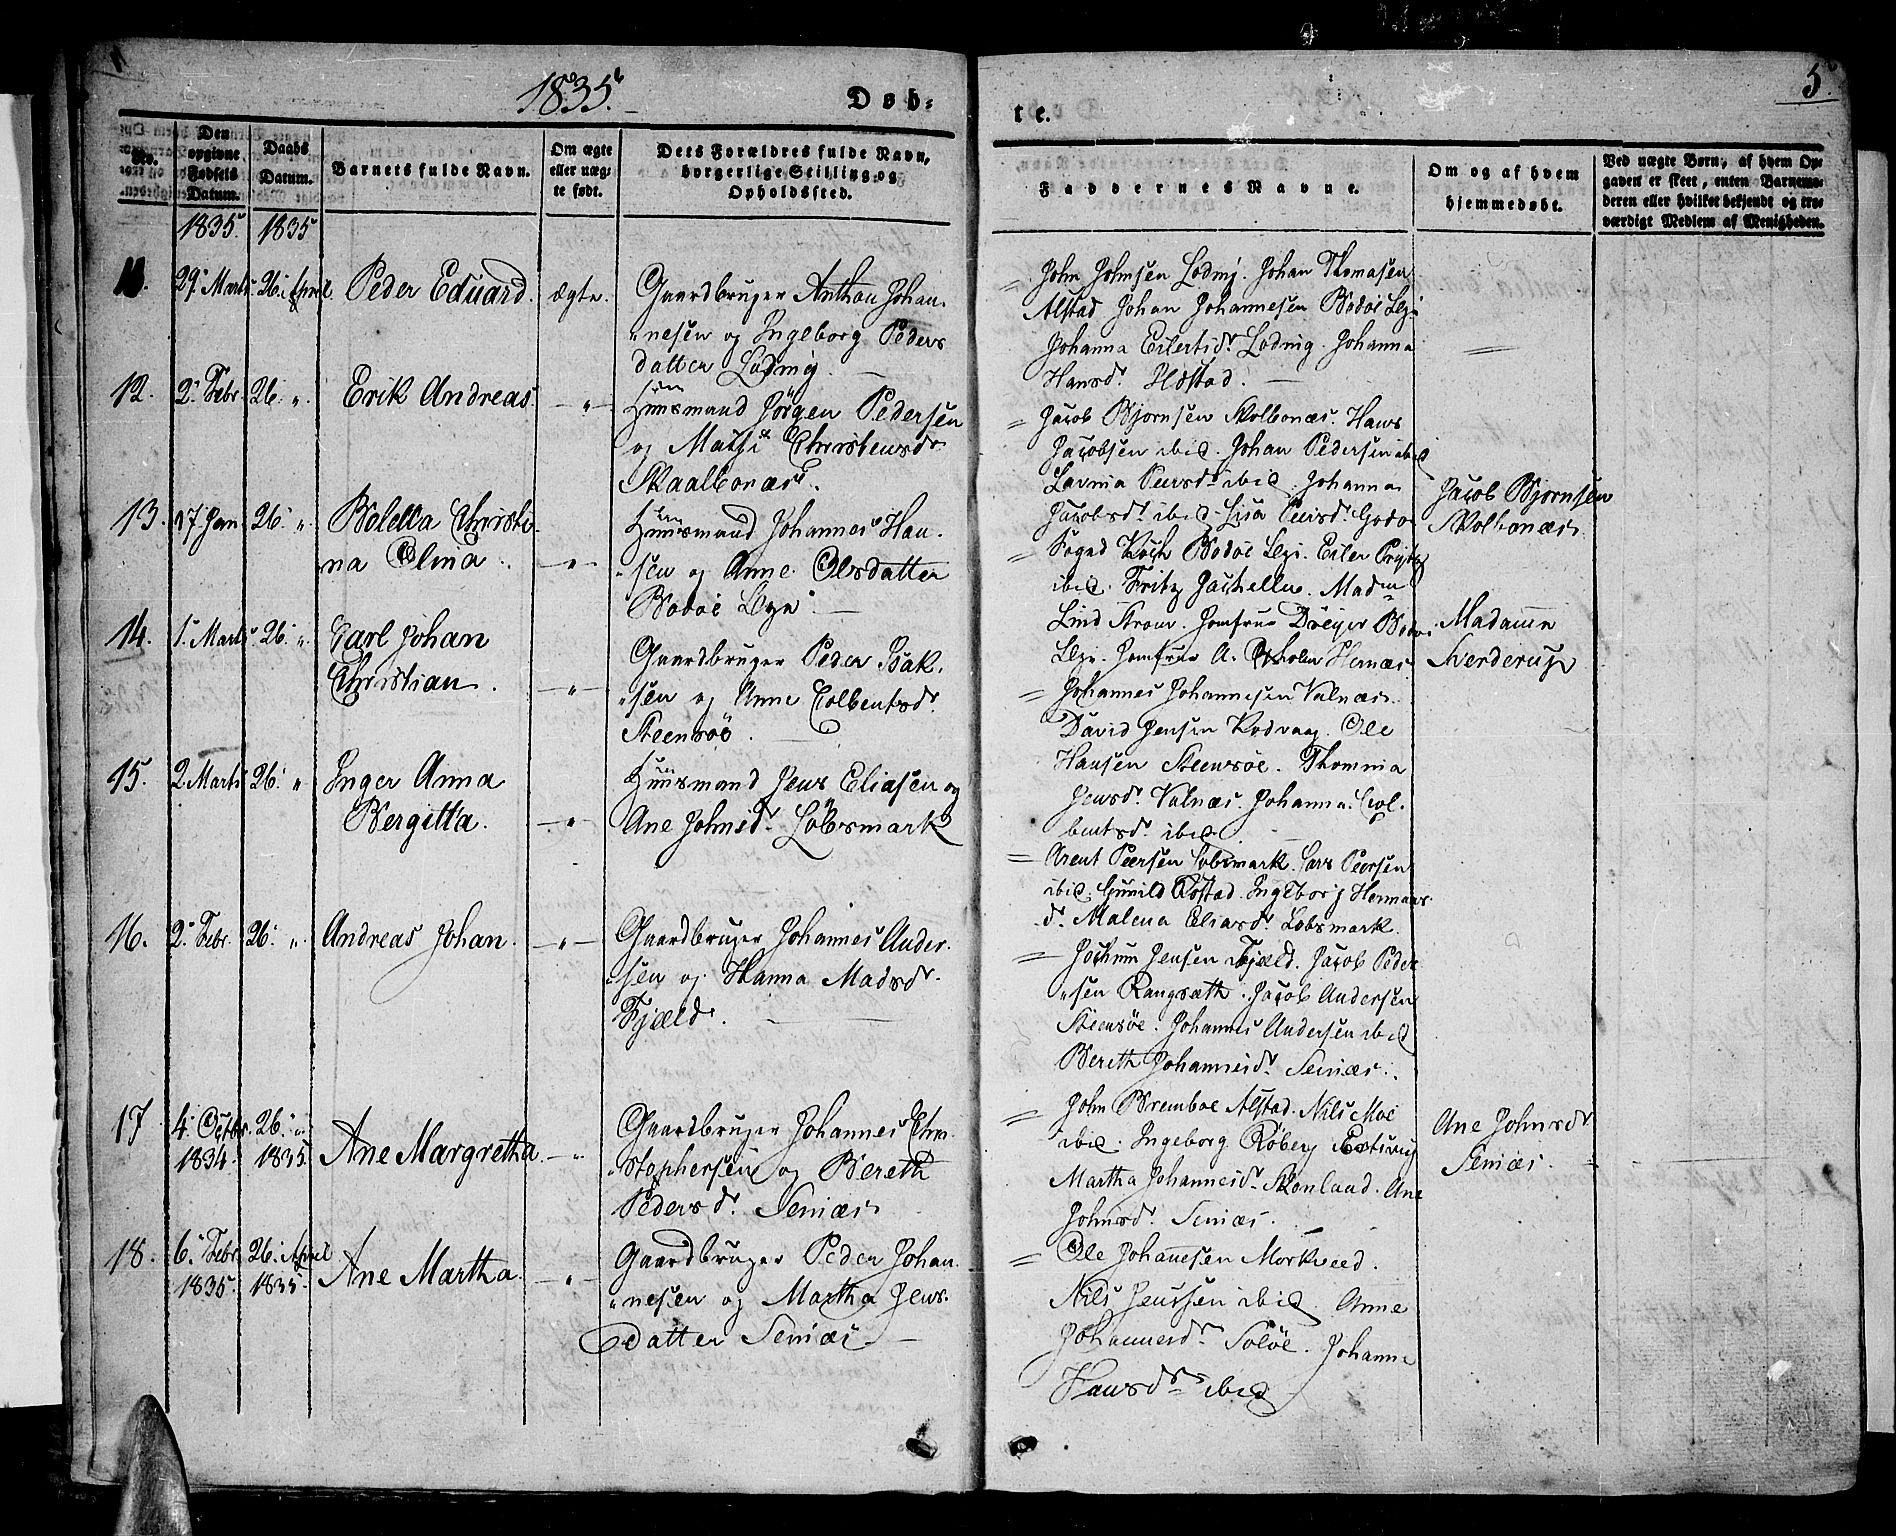 1835.
Døb-
te.
5.
No.
Den opgivne Fødsels Datum.
Daabs Datum.
Barnets fulde Navn.
Om ægte eller uægte født.
Dets Forældres fulde Navn, borgerlige Stilling og Opholdssted.
Faddernes Navne.
Om og af hvem hjemmedøbt.
Ved uægte Børn, af hvem Opgaven er skeet, enten Barnemoderen eller hvilket bekjendt og troværdigt Medlem af Menigheden.
1835. 1835
11. 29 Marts 26. April. Peder Eduard. ægte. Gaardbruger Anthon Johan-
nesen og Ingeborg Peders
datter Løding.
John Johnsen Løding. Johan Thomasen
Alstad Johan Johannesen Bodøe
Johanna Eilertsdr. Løding. Johanna
Hansdr.
12. 2. Febr. 26. " Erik Andreas. — " — Huusmand Jörgen Pedersen
og Christensdr
Skaalbonæs.
Jacob Bjornsen Skolbonæs. Hans
Jacobsen ibid. Johan Pedersen ibid
Lavina Peersdr ibid. Johanna
Jacobsdr. ibid. Lisa Peersdr. Godø
Jacob Bjornsen
Skolbonæs.
13. 17 Jan. 26. " Boletta Christi-
na Olina. — " — Huusmand Johannes Han-
sen og Anne Olsdatter
Bodøe
Koch Bodøe Eiler
ibid. Fritz Jachelln. Madm
Lind Jomfrue Dreyer Bodøe
Jomfrue A. Hernæs.
Madamm
Sverderup
14. 1. Marts 26. " Carl Johan
Christian. — " — Gaardbruger Peder Isak-
sen og Anne Colbentsdr.
Steensøe.
Johannes Johannesen Valnæs.
David Jensen Kodvaag. Ole
Hansen Steensøe. Thomina
Jensdr. Valnæs. Johanna Col-
bentsdr. ibid
15. 2 Marts 26. " Inger Anna
Bergitta. — " — Huusmand Jens Eliasen og
Ane Johnsdr. Löbsmark
Arent Peersen Löbsmark. Lars Peersen
ibid. Gunild Ingeborg Hermans
dr. Malena Eliasdr. Löbsmark.
16. 2. Febr. 26. " Andreas Johan. — " — Gaardbruger Johannes Ander-
sen og Hanna Madsdr.
Fjæld.
Jochum Jensen Fjæld. Jacob Peder-
sen Rangsæth. Jacob Andersen
Steensøe. Johannes Andersen ibid
Bereth Johannesdr. Seinæs.
17 4. Octbr. 26. "
1834. 1835. Ane Margretha. — " — Gaardbruger Johannes Chri-
stophersen og Bereth
Pedersdr. Seinæs.
John Bremboe Alstad. Nils Moe
ibid. Ingeborg Röberg
Martha Johannesdr. Skonland. Ane
Johnsdr. Seinæs.
Ane Johnsdr
Seinæs.
18. 6. Febr. 26. April
1835. 1835. Ane Martha. — " — Gaardbruger Peder Johan-
nesen og Martha Jens-
datter Seinæs
Ole Johanesen Morkveed.
Nils Jenssen ibid. Anne
Johannesdr. Soløe. Johanne
Hansdr ibid